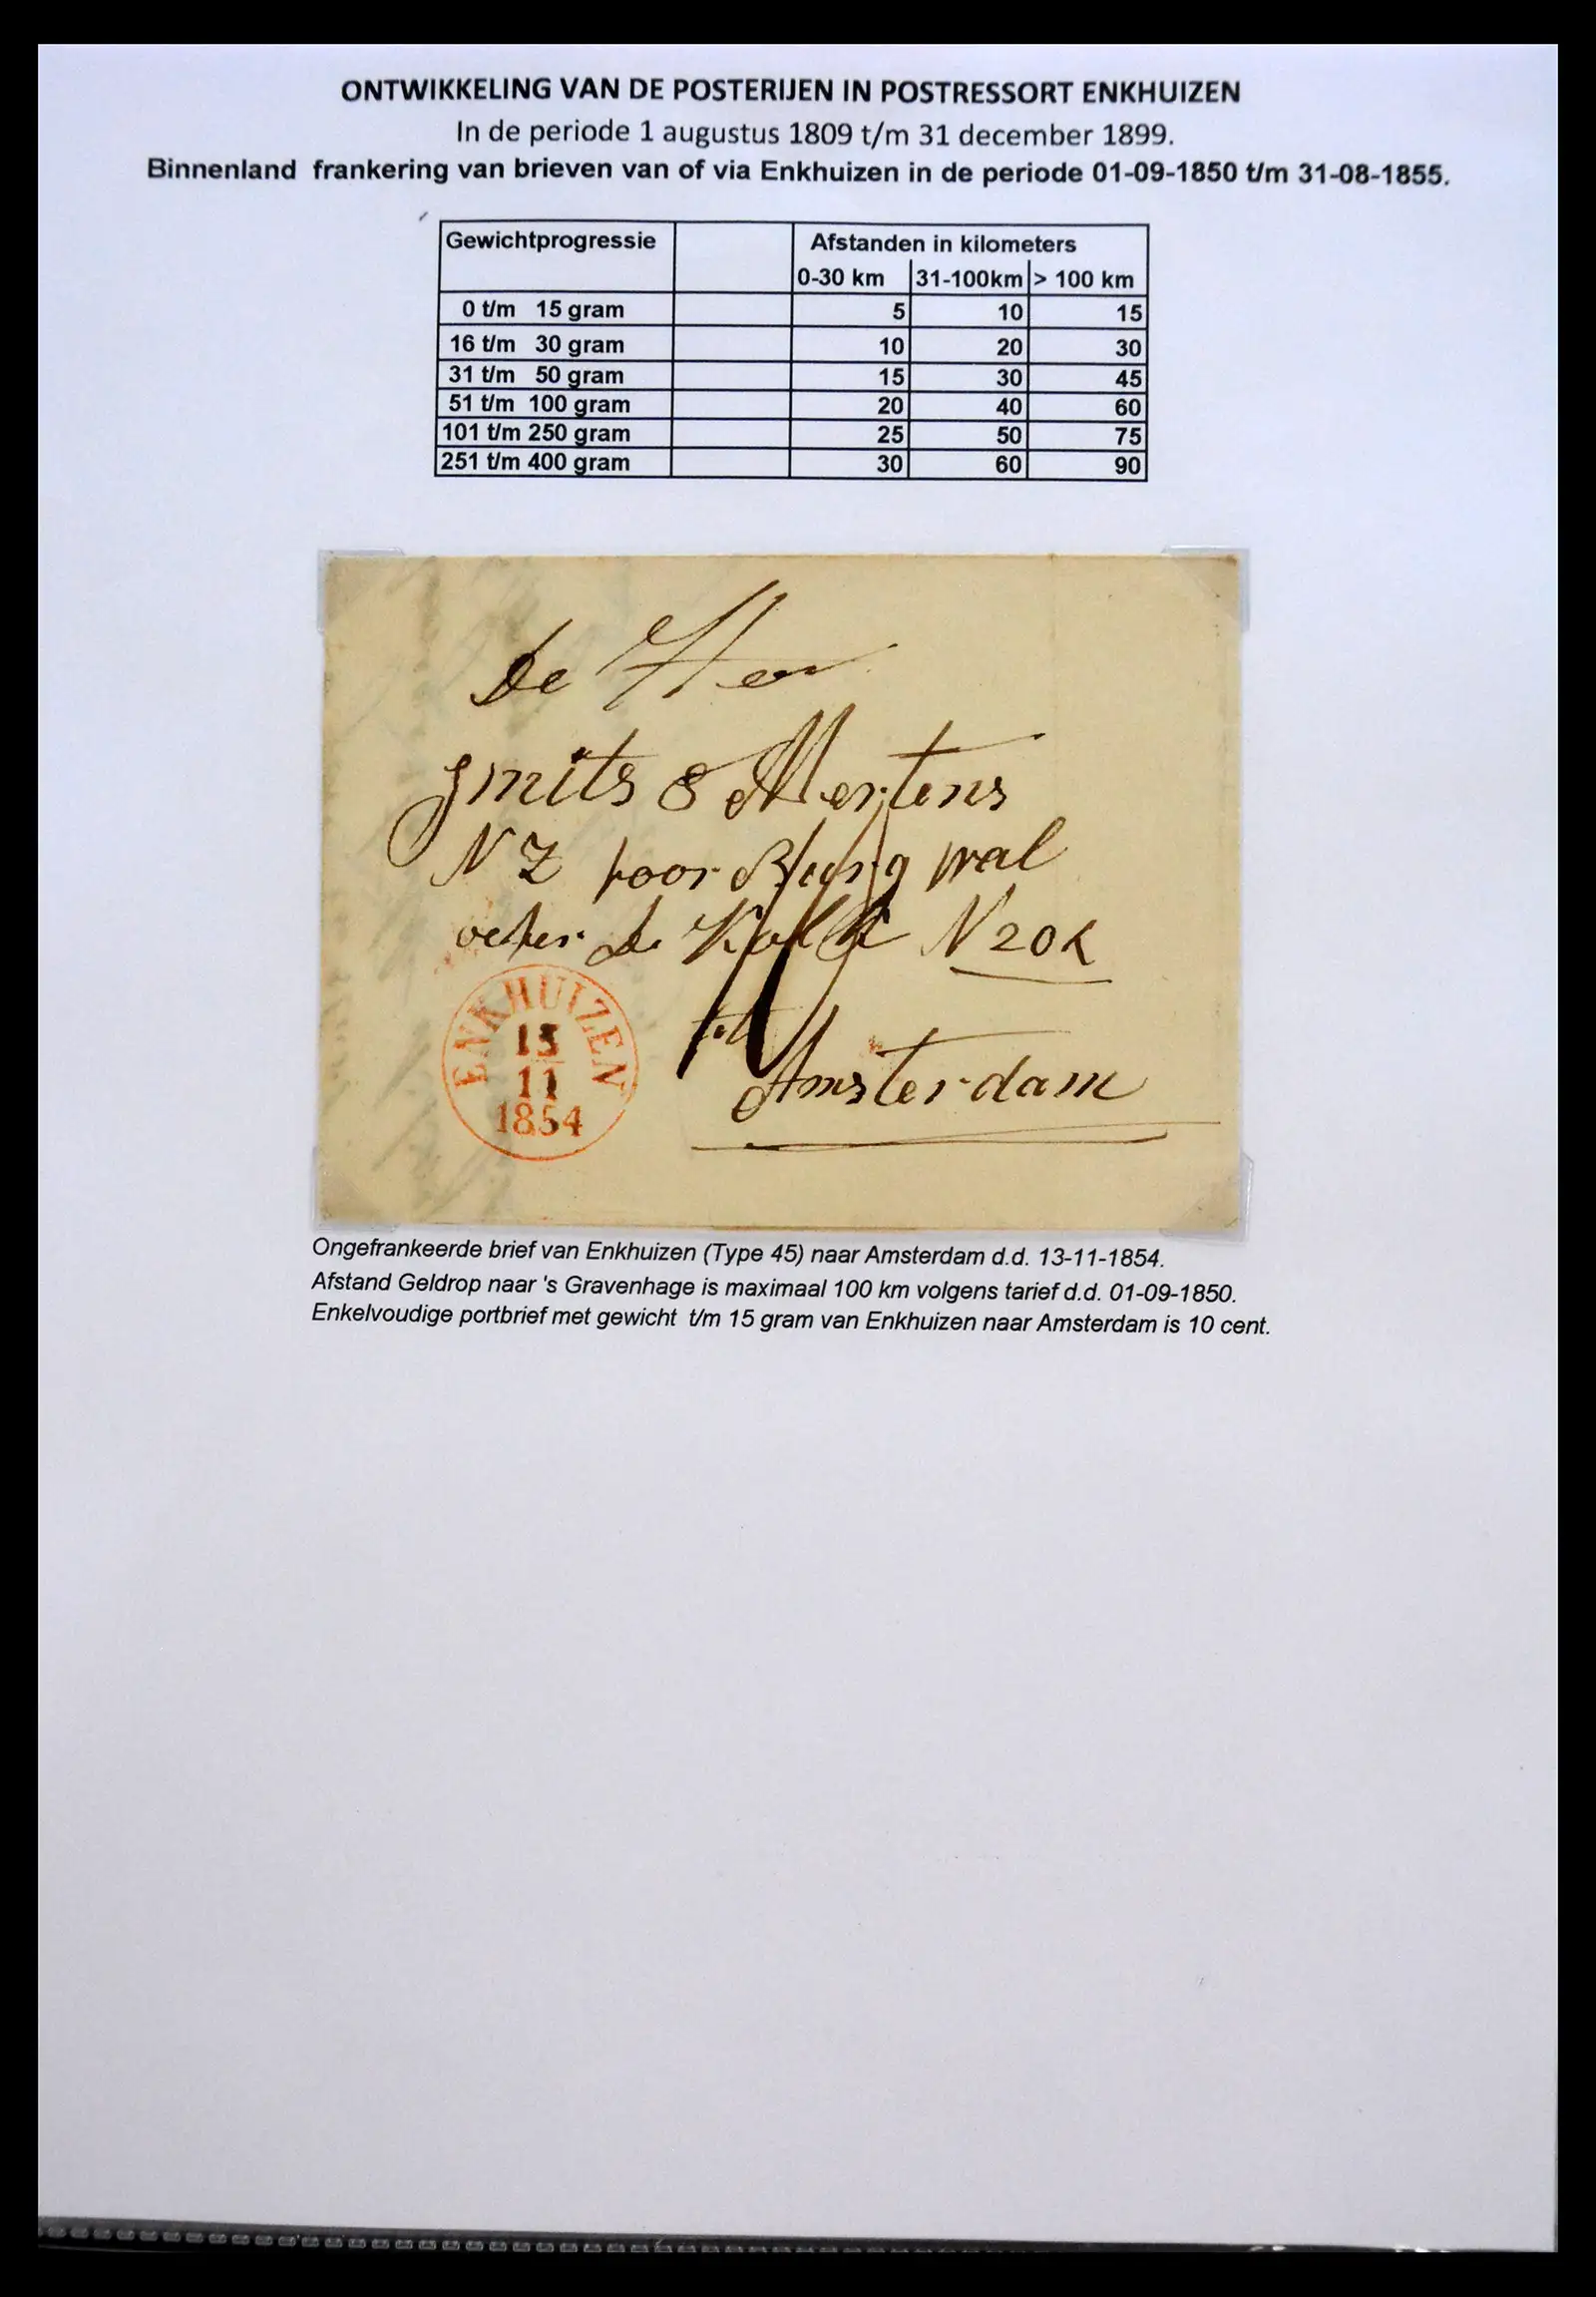 ONTWIKKELING VAN DE POSTERIJEN IN POSTRESSORT ENKHUIZEN
In de periode 1 augustus 1809 t/m 31 december 1899.
Binnenland frankering van brieven van of via Enkhuizen in de periode 01-09-1850 t/m 31-08-1855.
Gewichtprogressie Afstanden in kilometers
0-30 km 31-100km > 100 km
0 t/m 15 gram 5 10 15
16 t/m 30 gram 10 20 30
31 t/m 50 gram 15 30 45
51 t/m 100 gram 20 40 60
101 t/m 250 gram 25 50 75
251 t/m 400 gram 30 60 90
De Heer
Smits & Mertens
N Z voor Burg wal
de Kolk N 20
ENKHUIZEN
13
11
1854
Amsterdam
Ongefrankeerde brief van Enkhuizen (Type 45) naar Amsterdam d.d. 13-11-1854.
Afstand Geldrop naar 's Gravenhage is maximaal 100 km volgens tarief d.d. 01-09-1850.
Enkelvoudige portbrief met gewicht t/m 15 gram van Enkhuizen naar Amsterdam is 10 cent.